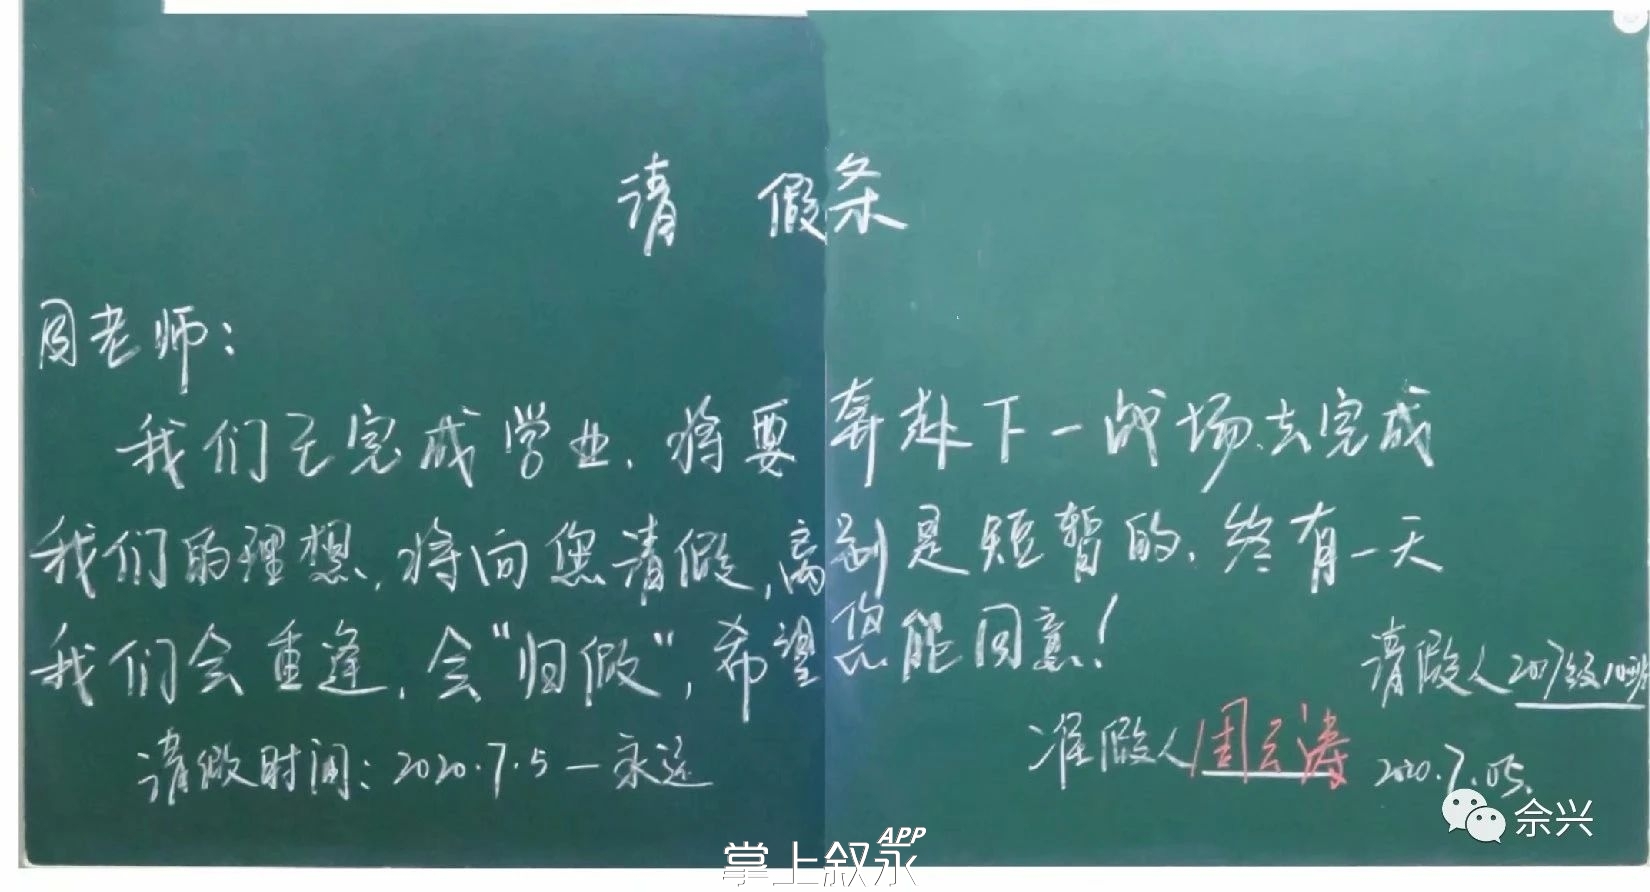 请假条
周老师：
我们已完成学业，将要奔赴下一战场去完成
我们的理想，将向您请假，离别是短暂的，终有一天
我们会重逢，会“归假”，希望您能同意！
请假人2017级10班
请假时间：2020.7.5—永远
准假人周云涛
2020.7.05.
余兴
掌上叙永APP